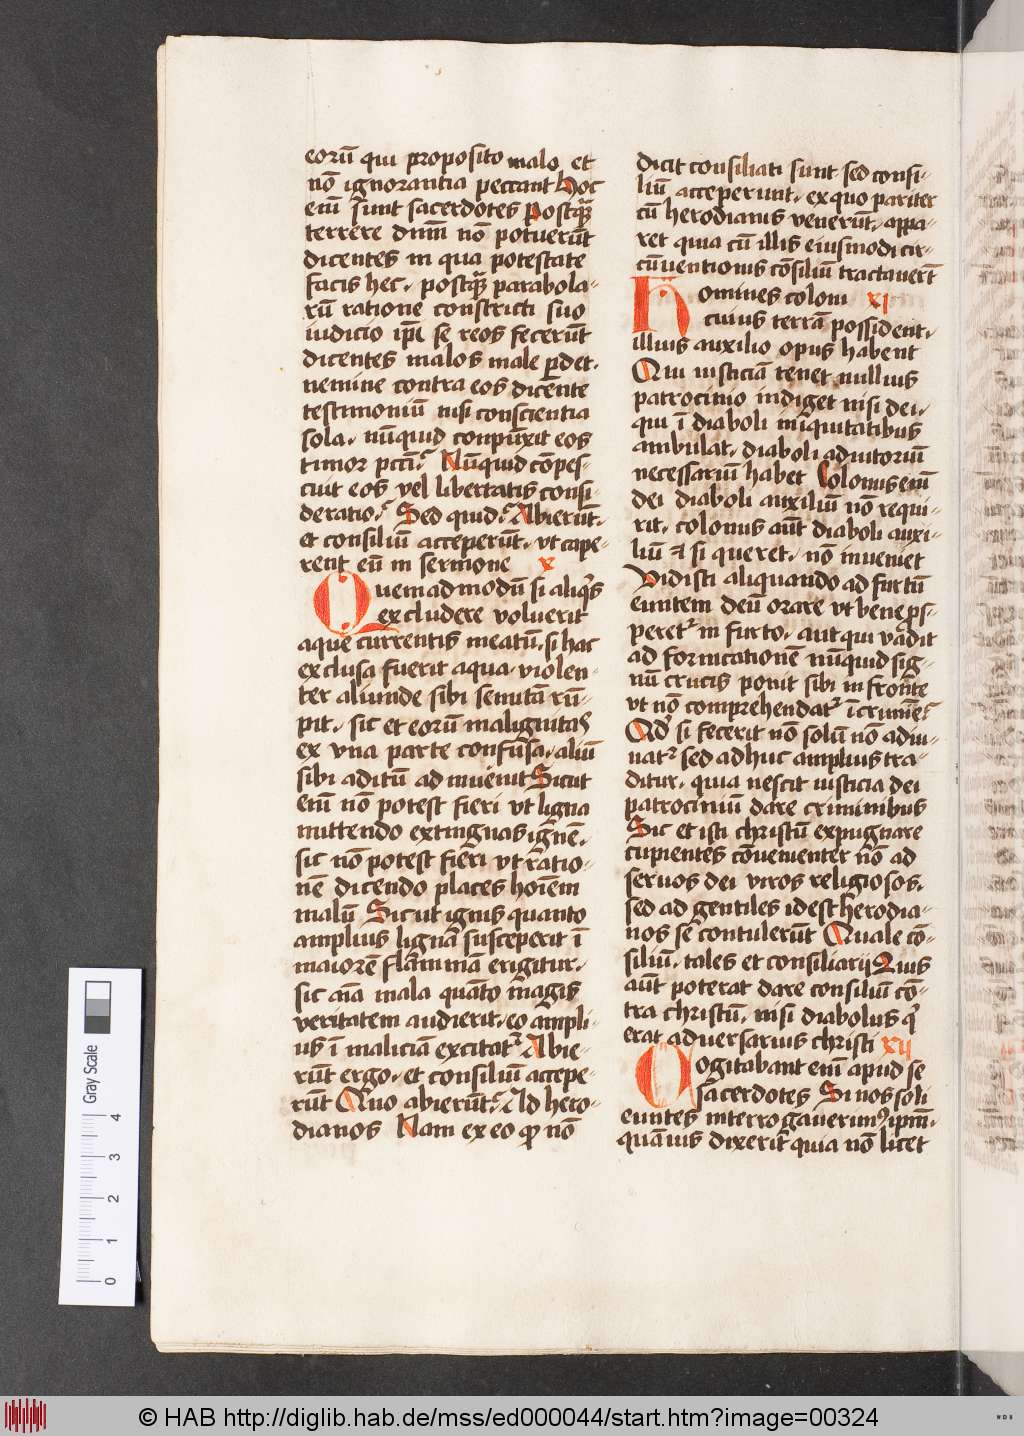 eorū qui proposito malo et
nō ignorantia peccant Hoc
enī sūnt sacerdotes Postꝙ̄
terrere dnm̄ nō potuerūt
dicentes in qua potestate
facis hec. postꝙ̄ parabola-
rū ratione constricti suo
iudicio ip̄i se reos fecerūt
dicentes malos male ꝑdet.
nemine contra eos dicente
testimoniū nisi conscientia
sola. nūquid conpūxit eos
timor pctī? Nūquid cōpes-
cuit eos vel libertatis consi-
deratio? Sed quid? Abierūt.
et consiliū acceperūt. vt cape-
rent eū in sermone x
Quemadmodū si aliq̄s
excludere voluerit
aque currentis meatū. si hac
exclusa fuerit aqua. violen-
ter aliunde sibi semitā rū-
pit. sic et eorū malignitas
ex vna parte confusa. aliū
sibi aditū ad inuēnit Sicut
enī nō potest fieri vt ligna
mittendo extinguas ignē.
sic nō potest fieri vt ratio-
nē dicendo places hoīem
malū Sicut ignis quanto
amplius lignā susceperit ī
maiorē flammā erigitur.
sic aīa mala quāto magis
veritatem audierit. eo ampli-
us ī maliciā excitat᷑ Abie-
rūt ergo. et consiliū accepe-
rūt Quo abierūt? Ad hero-
dianos Nam ex eo ꝙ nō
dicit consiliati sunt sed consi-
liū acceperunt. ex quo pariter
cū herodianis venerūt. appa-
ret quia cū illis eiusmodi cir-
cūuentionis cōsiliū tractauerūt
Homines coloni xj
cuius terrā possident.
illius auxilio opus habent
Qui iusticiā tenet nullius
patrocinio indiget nisi dei.
qui ī diaboli iniquitatibus
ambulat. diaboli adiutoriū
necessariū habet Colonus enī
dei diaboli auxiliū nō requi-
rit. colonus aūt diaboli auxi-
liū ⁊ si queret. nō inueniet
Vidisti aliquando ad furtū
euntem deū orare vt bene ꝓs-
peret᷑ in furto. aut qui vadit
ad fornicationē nūquid sig-
nū crucis ponit sibi in fronte
vt nō comprehendat᷑ ī crimīe?
Qd̓ si fecerit nō solū nō adiu-
uat᷑ sed adhuc amplius tra-
ditur. quia nescit iusticia dei
patrociniū dare criminibus
Sic et isti christū expugnare
cupientes cōuenienter nō ad
seruos dei viros religiosos.
sed ad gentiles id est herodia-
nos se contulerūt Quale cō-
siliū. tales et consiliarij Quis
aūt poterat dare consiliū cō-
tra christū. nisi diabolus q̄
erat aduersarius christi xij
Cogitabant enī apud se
sacerdotes Si nos soli
euntes interrogauerimꝰ ipm̄.
quāuis dixerit quia nō licet
© HAB http://diglib.hab.de/mss/ed000044/start.htm?image=00324
Gray Scale
4
3
2
1
0